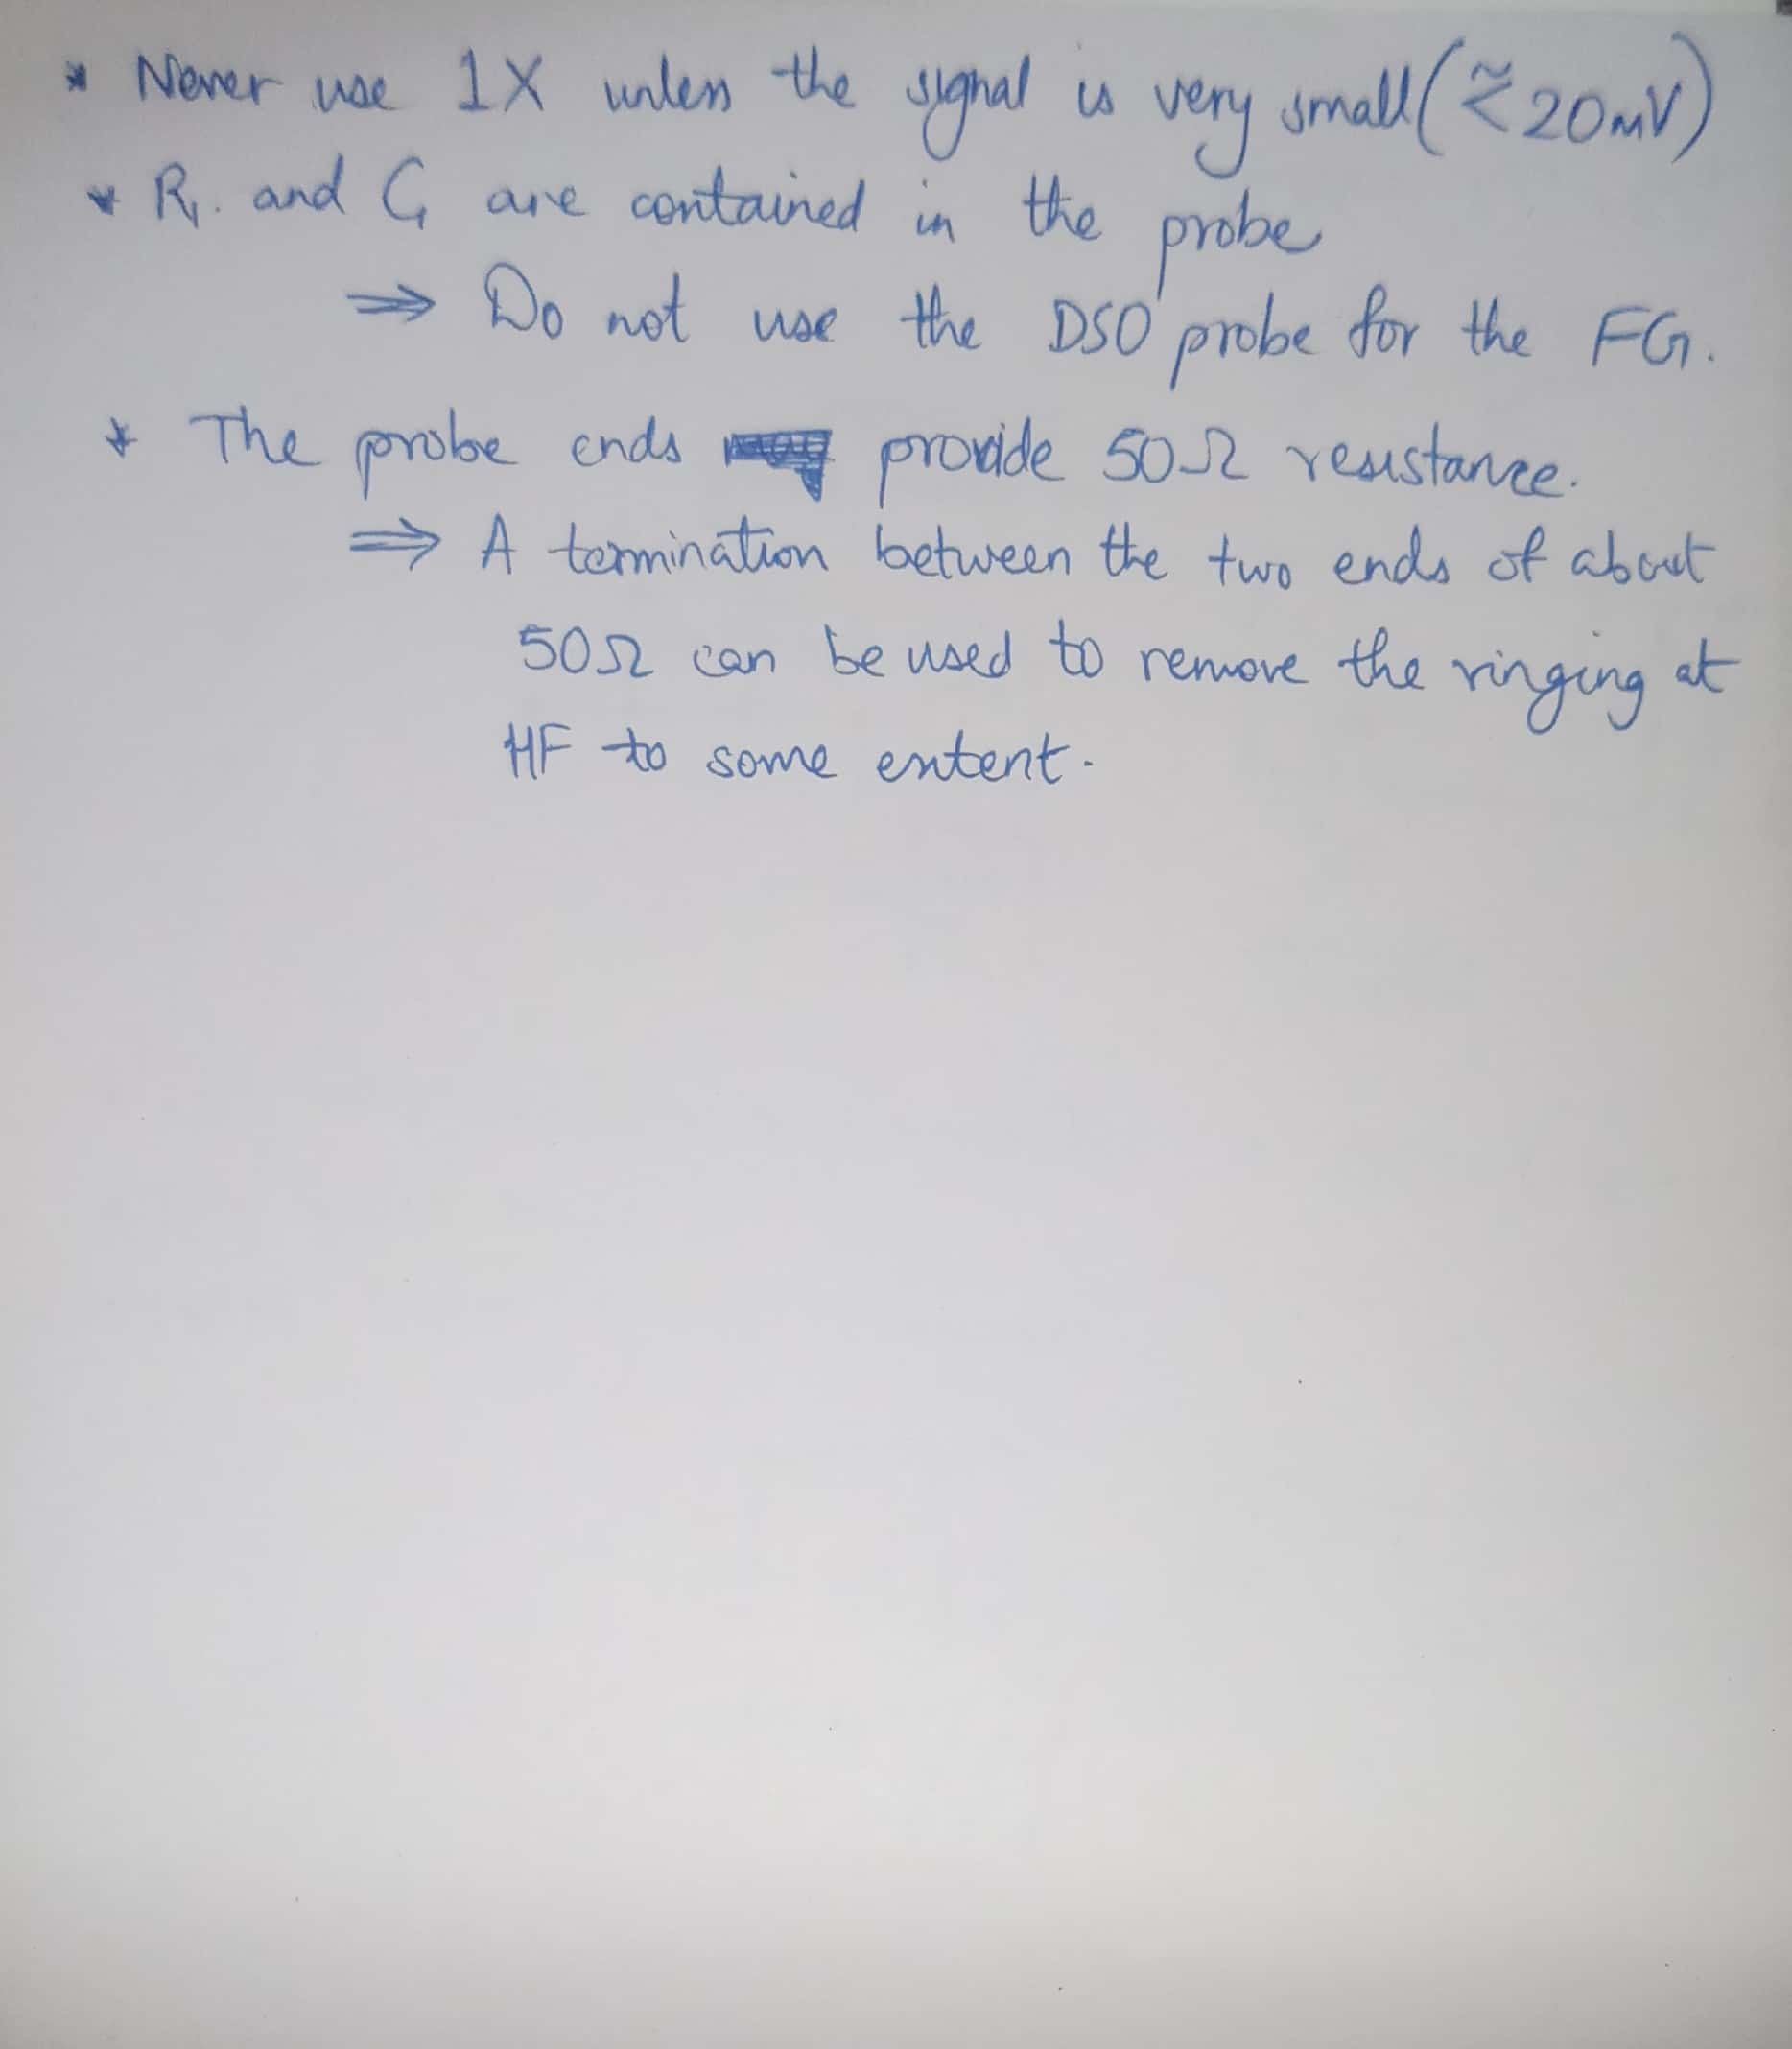 * Never use 1X unless the signal is very small (≲ 20mV)
* R₁ and C₁ are contained in the probe
⇒ Do not use the DSO probe for the FG.
* The probe ends provide 50Ω resistance.
⇒ A termination between the two ends of about
50Ω can be used to remove the ringing at
HF to some extent.